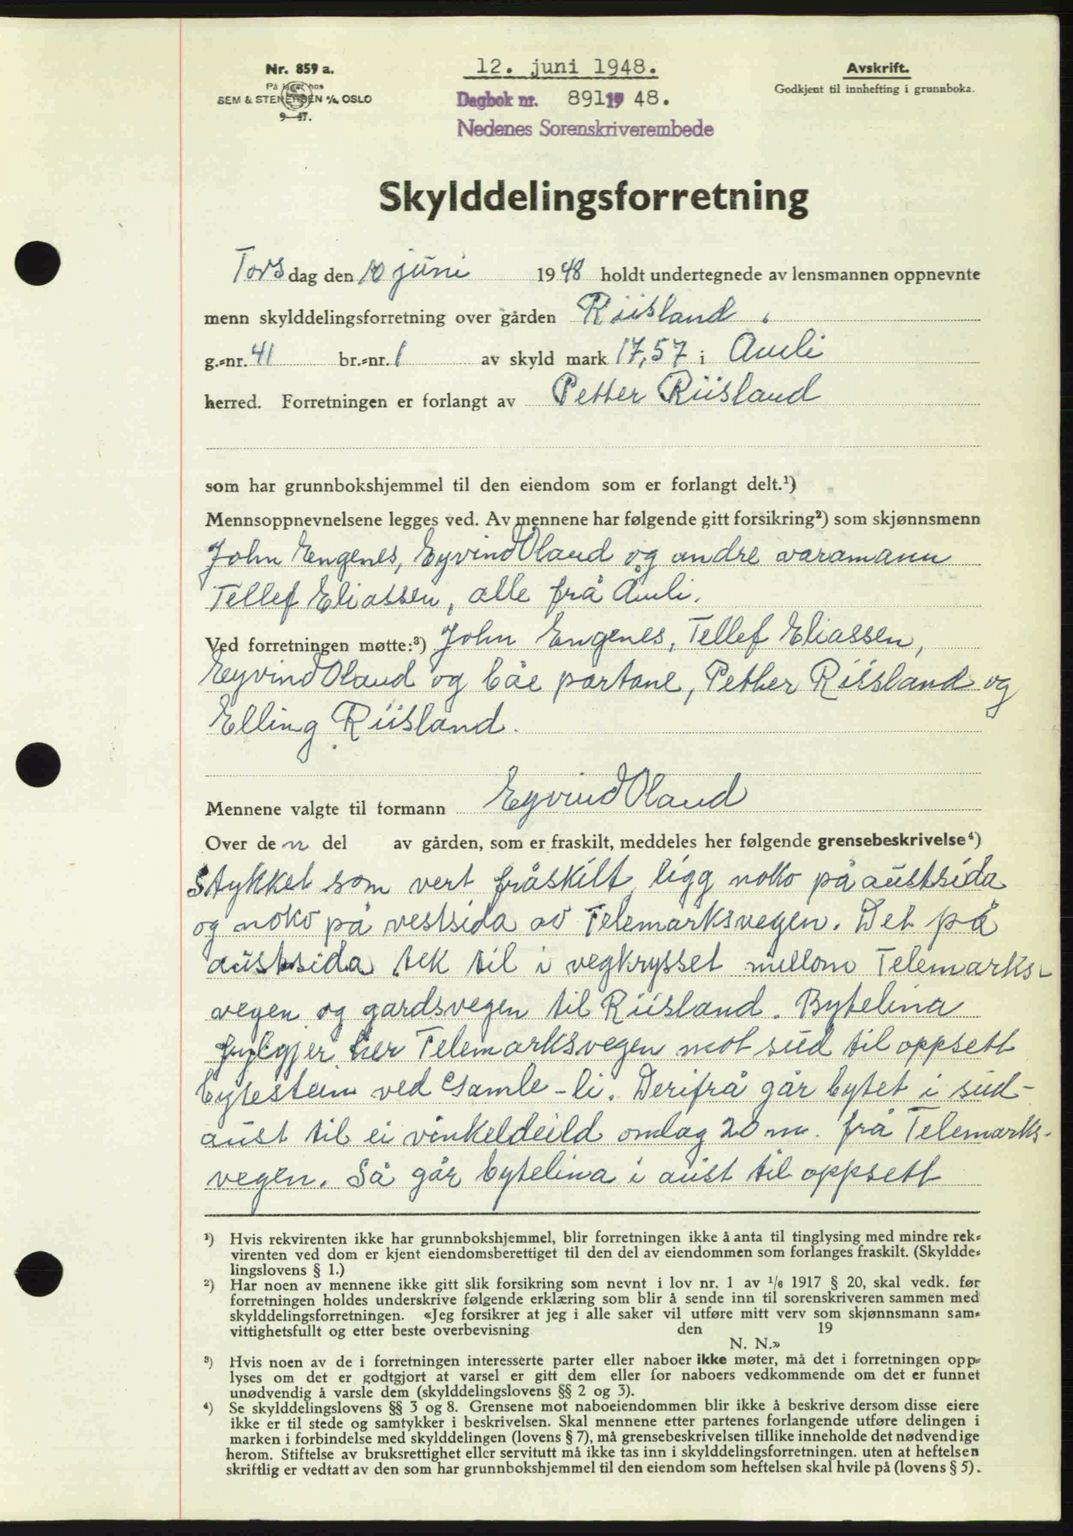 Nr. 859 a.
På lager hos
SEM & STENERSEN A/S, OSLO
9—47.
12. juni 1948.
Dagbok nr. 891 19 48.
Nedenes Sorenskriverembede
Avskrift.
Godkjent til innhefting i grunnboka.
Skylddelingsforretning
Tors dag den 10 juni 19 48 holdt undertegnede av lensmannen oppnevnte
menn skylddelingsforretning over gården Riisland,
g.-nr. 41 br.-nr. 1 av skyld mark 17,57 i Åmli
herred. Forretningen er forlangt av Petter Riisland
som har grunnbokshjemmel til den eiendom som er forlangt delt.¹)
Mennsoppnevnelsene legges ved. Av mennene har følgende gitt forsikring²) som skjønnsmenn
John Engenes, Eyvind Oland og andre varamann
Tellef Eliassen, alle frå Åmli.
Ved forretningen møtte:³) John Engenes, Tellef Eliassen,
Eyvind Oland og båe partane, Petter Riisland og
Elling Riisland.
Mennene valgte til formann Eyvind Oland
Over de n del av gården, som er fraskilt, meddeles her følgende grensebeskrivelse⁴)
Stykket som vert fråskilt, ligg noko på austsida
og noko på vestsida av Telemarksvegen. Det på
austsida tek til i vegkrysset mellom Telemarks-
vegen og gardsvegen til Riisland. Bytelina
fylgjer her Telemarksvegen mot sud til oppsett
bytestein ved Gamle-li. Derifrå går bytet i sud-
aust til ei vinkeldeild omlag 20 m. frå Telemarks-
vegen. Så går bytelina i aust til oppsett
¹) Hvis rekvirenten ikke har grunnbokshjemmel, blir forretningen ikke å anta til tinglysing med mindre rek-
virenten ved dom er kjent eiendomsberettiget til den del av eiendommen som forlanges fraskilt. (Skyldde-
lingslovens § 1.)
²) Har noen av mennene ikke gitt slik forsikring som nevnt i lov nr. 1 av 1/6 1917 § 20, skal vedk. før
forretningen holdes underskrive følgende erklæring som blir å sende inn til sorenskriveren sammen med
skylddelingsforretningen. «Jeg forsikrer at jeg i alle saker vil utføre mitt verv som skjønnsmann sam-
vittighetsfullt og etter beste overbevisning den 19
N. N.»
³) Hvis noen av de i forretningen interesserte parter eller naboer ikke møter, må det i forretningen opp-
lyses om det er godtgjort at varsel er gitt dem eller for naboers vedkommende om det er funnet
unødvendig å varsle dem (skylddelingslovens §§ 2 og 3).
⁴) Se skylddelingslovens §§ 3 og 8. Grensene mot naboeiendommen blir ikke å beskrive dersom disse eiere
ikke er til stede og samtykker i beskrivelsen. Skal mennene etter partenes forlangende utføre delingen i
marken i forbindelse med skylddelingen (lovens § 7), må grensebeskrivelsen tillike inneholde det nødvendige
herom. Stiftelse av bruksrettighet eller servitutt må ikke tas inn i skylddelingsforretningen, uten at heftelsen
skriftlig er vedtatt av den som har grunnbokshjemmel til den eiendom som heftelsen skal hvile på (lovens § 5).